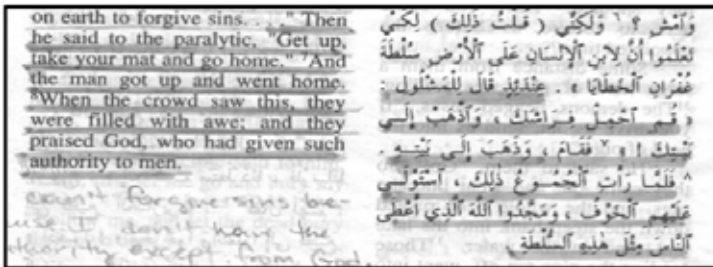 on earth to forgive sins. . . ." Then
he said to the paralytic, "Get up,
take your mat and go home." ⁷And
the man got up and went home.
⁸When the crowd saw this, they
were filled with awe; and they
praised God, who had given such
authority to men.
can't forgive sins be-
I don't have the
except from God.
وَآمْشِ ؟ ٦ وَلَكِنِّي ( قُلْتُ ذَلِكَ ) لِكَيْ
تَعْلَمُوا أَنَّ لِابْنِ ٱلْإِنْسَانِ عَلَى ٱلْأَرْضِ سُلْطَةَ
غُفْرَانِ ٱلْخَطَايَا » . عِنْدَئِذٍ قَالَ لِلْمَشْلُولِ :
« قُمِ ٱحْمِلْ فِرَاشَكَ ، وَٱذْهَبْ إِلَى
بَيْتِكَ ! » ٧ فَقَامَ ، وَذَهَبَ إِلَى بَيْتِهِ .
٨ فَلَمَّا رَأَتِ ٱلْجُمُوعُ ذَلِكَ ، ٱسْتَوْلَى
عَلَيْهِمِ ٱلْخَوْفُ ، وَمَجَّدُوا ٱللهَ ٱلَّذِي أَعْطَى
ٱلنَّاسَ مِثْلَ هَذِهِ ٱلسُّلْطَةِ .